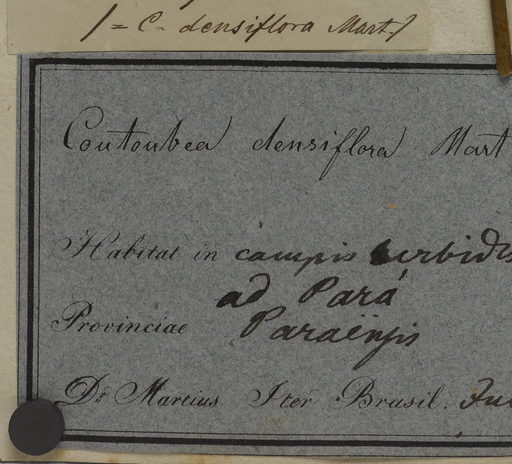 / = C. densiflora Mart /
Coutoubea densiflora Mart
Habitat in campis
ad Pará
Provinciae Paraënsis
Dr. Martius Iter Brasil.